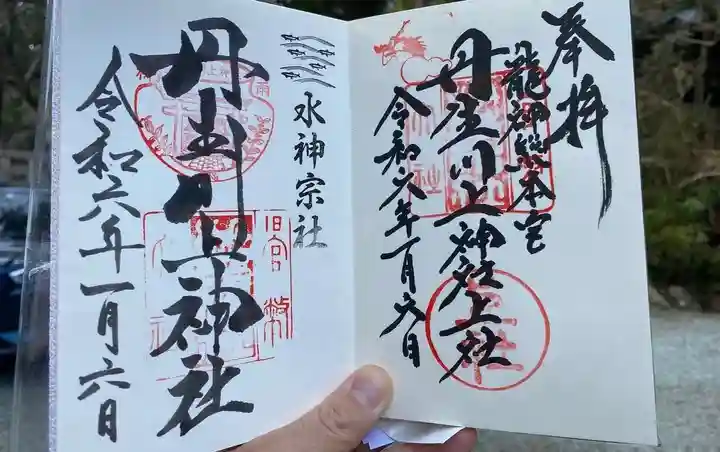 奉拝
龍神総本宮
丹生川上神社上社
令和六年一月六日
水神宗社
旧官幣
丹生川上神社
令和六年一月六日